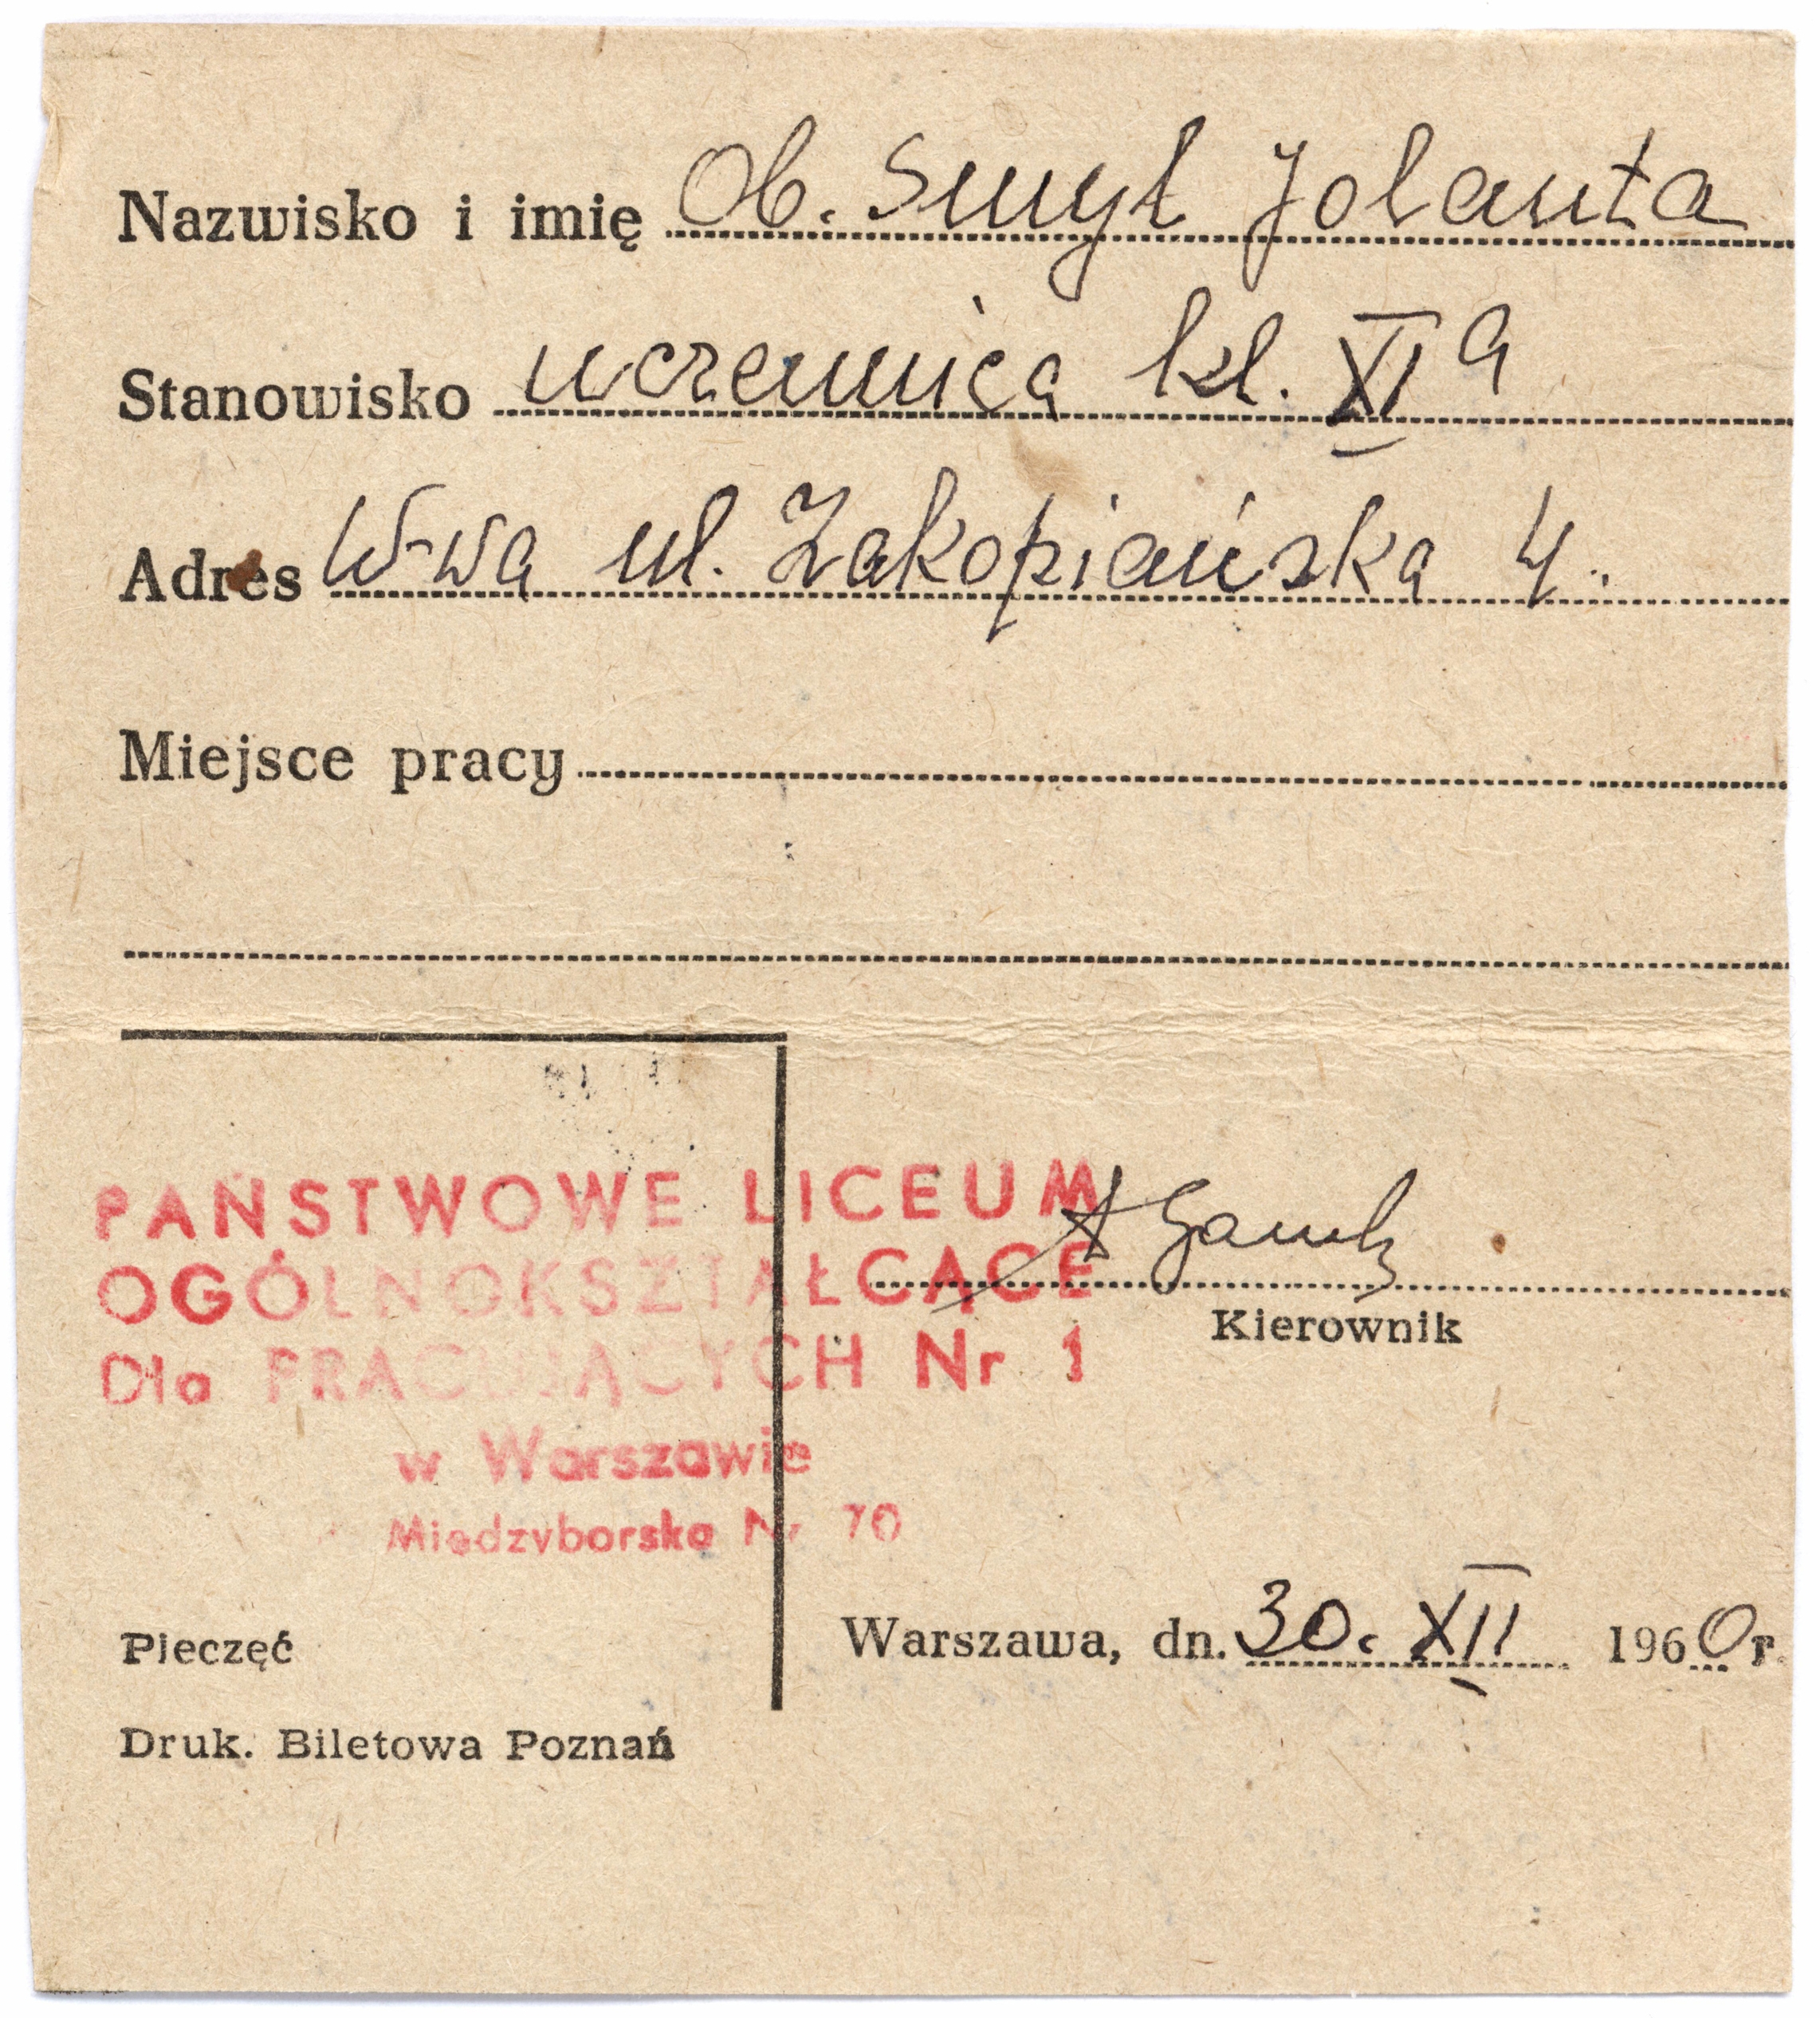 Nazwisko i imię Ob. Smył Jolanta
Stanowisko uczennica kl. XI a
Adres W-wa ul. Zakopiańska 4.
Miejsce pracy
PAŃSTWOWE LICEUM
OGÓLNOKSZTAŁCĄCE
Dla PRACUJĄCYCH Nr 1
w Warszawie
Międzyborska Nr 70
Kierownik
Warszawa, dn. 30. XII 1960 r.
Pieczęć
Druk. Biletowa Poznań